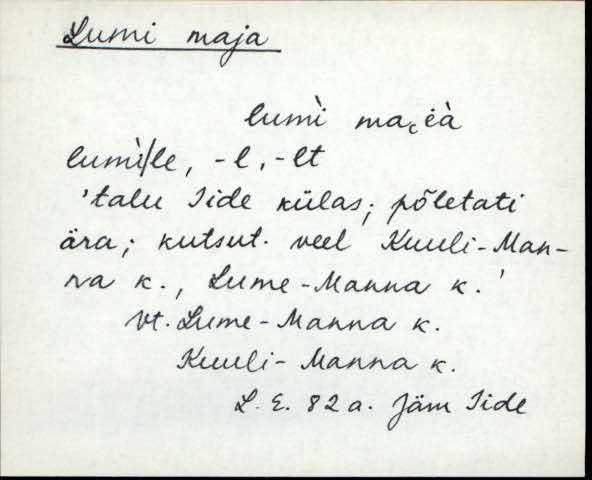 Lumi maja
lumì ma꞉i̯à
lumì/le, -l, -lt
'talu Iide külas; põletati
ära; kutsut. veel Kuuli-Man-
na k., Lume-Manna k.'
vt. Lume-Manna k.
Kuuli-Manna k.
L. E. 82 a. Jäm Iide